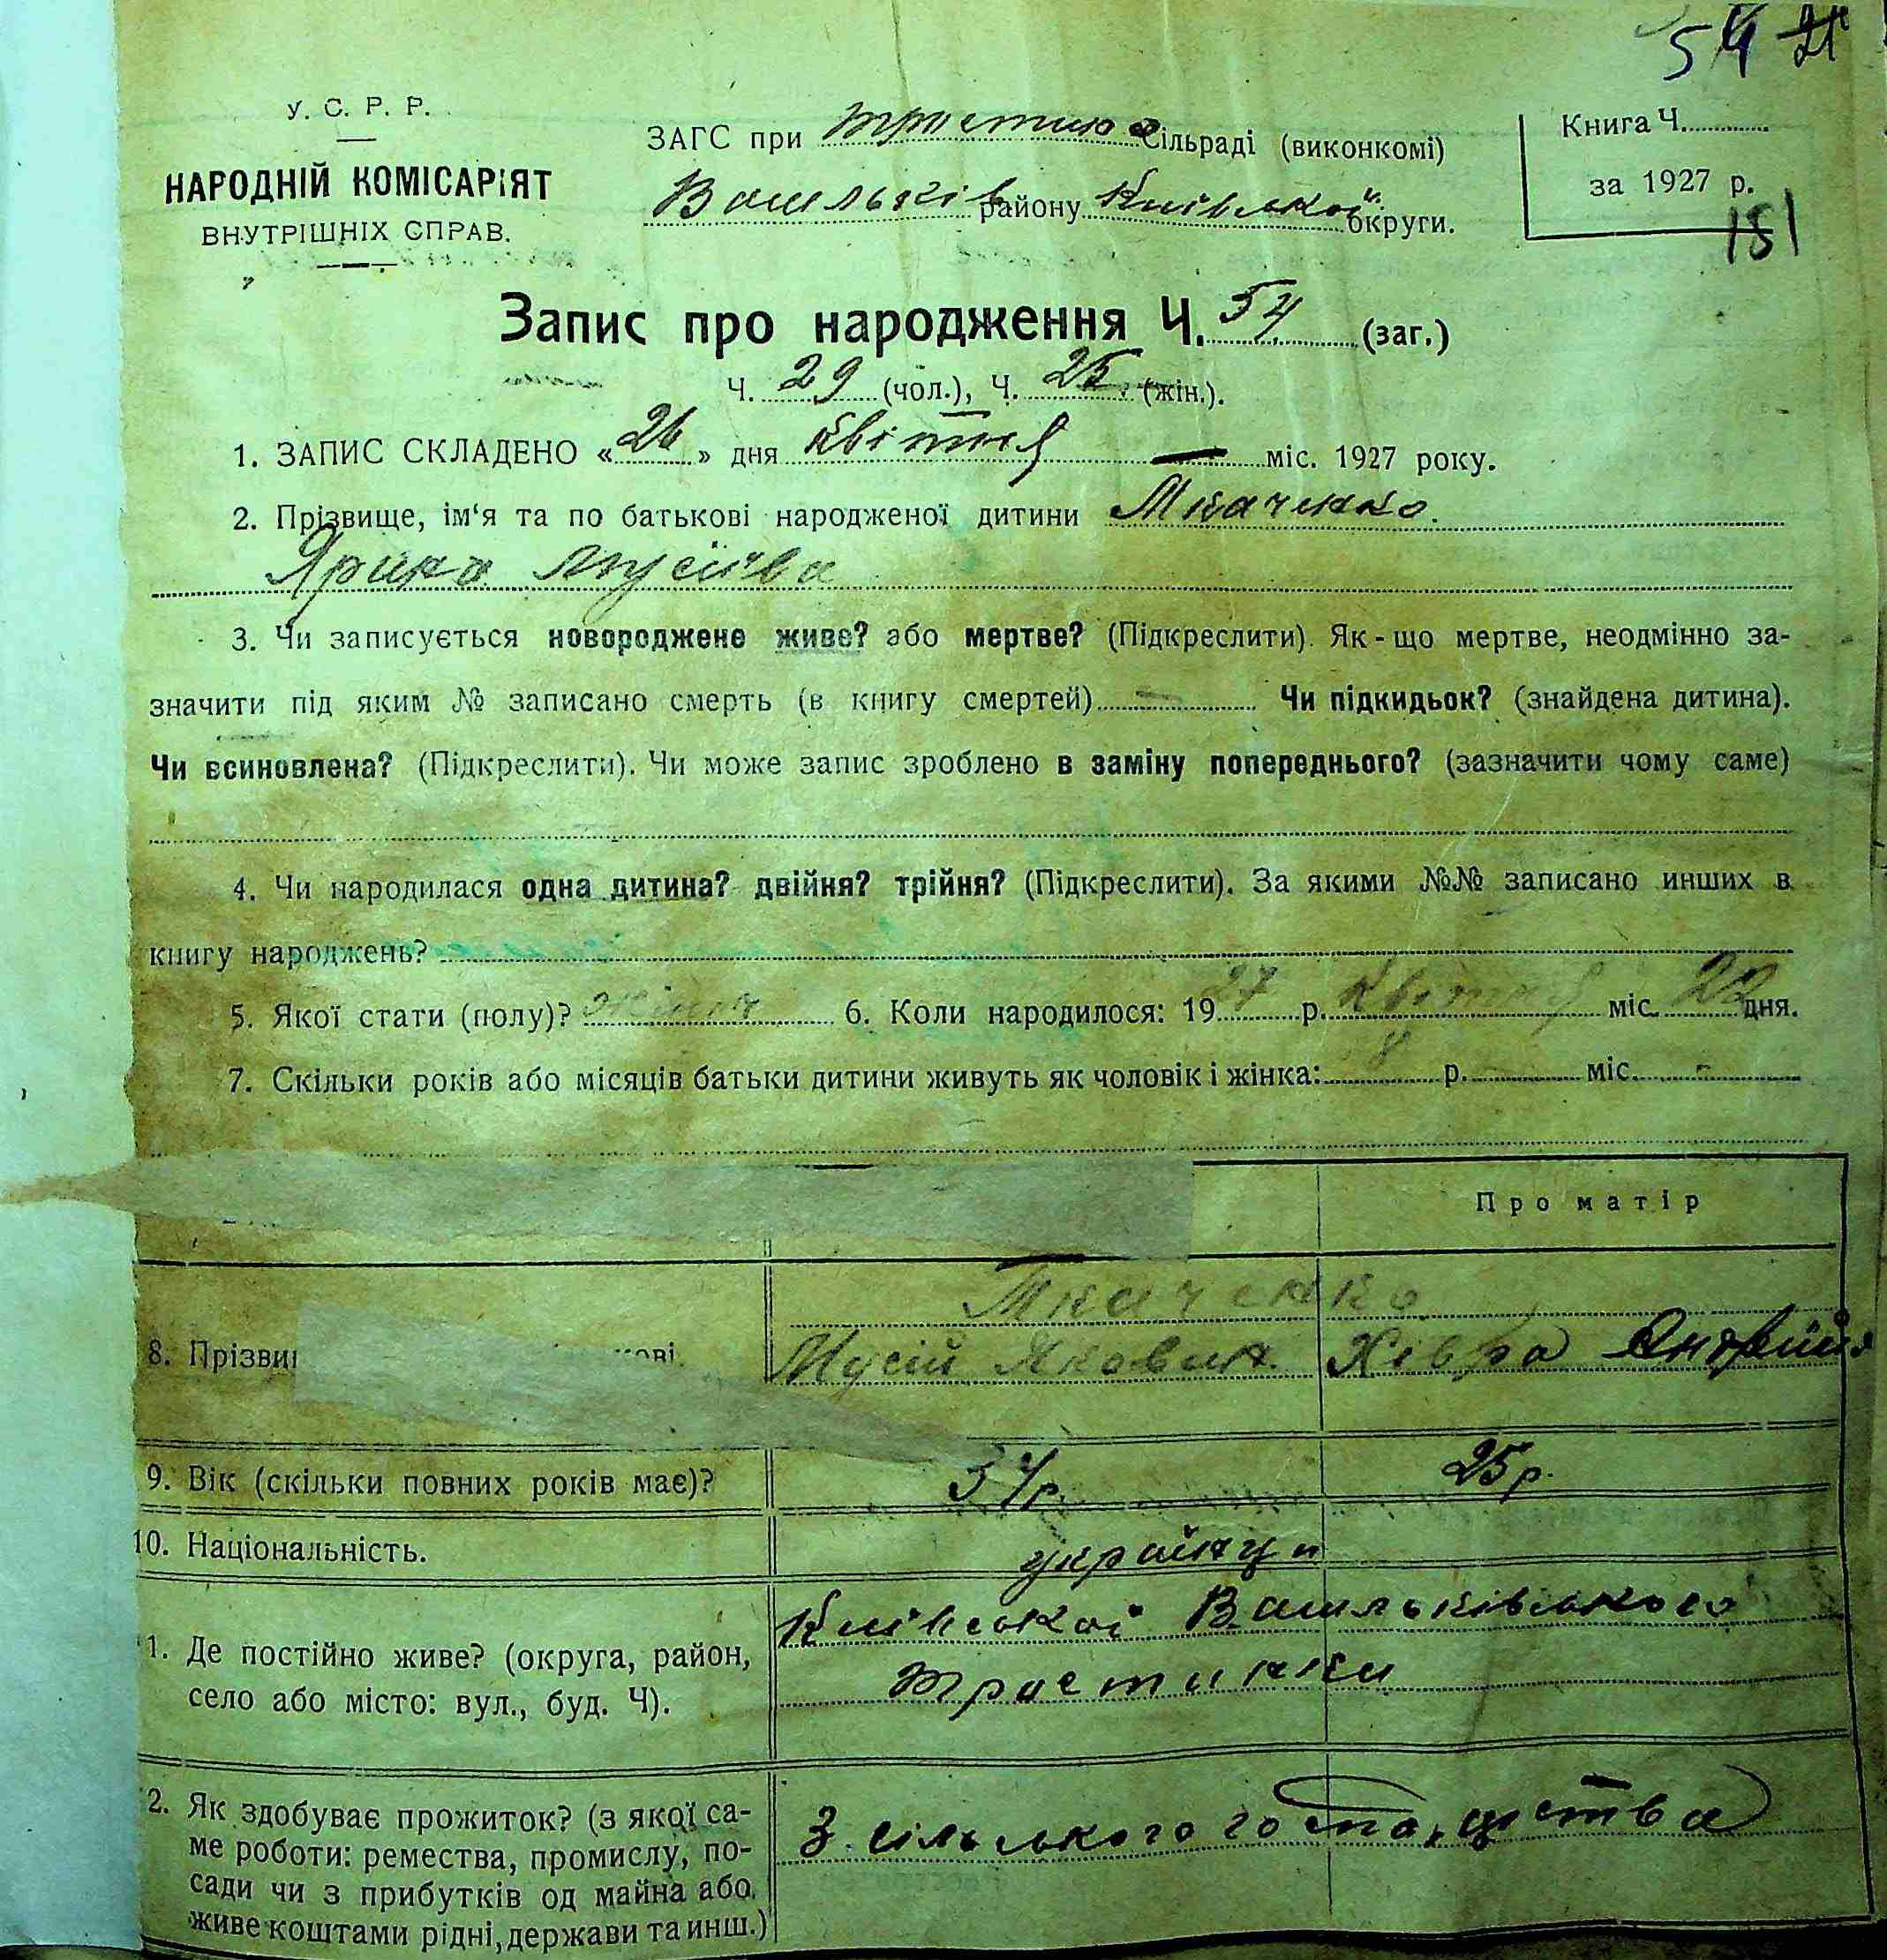 54
У. С. Р. Р.
НАРОДНІЙ КОМІСАРІЯТ
ВНУТРІШНІХ СПРАВ.
ЗАГС при Сільраді (виконкомі)
Васильків району Київської округи.
Книга Ч.
за 1927 р.
151
Запис про народження Ч. 54 (заг.)
Ч. 29 (чол.), Ч. 25 (жін.).
1. ЗАПИС СКЛАДЕНО «26» дня Квітня — міс. 1927 року.
2. Прізвище, ім'я та по батькові народженої дитини Ткаченко
Ярина Мусіїва
3. Чи записується новороджене живе? або мертве? (Підкреслити). Як-що мертве, неодмінно за-
значити під яким № записано смерть (в книгу смертей) — Чи підкидьок? (знайдена дитина).
Чи всиновлена? (Підкреслити). Чи може запис зроблено в заміну попереднього? (зазначити чому саме)
4. Чи народилася одна дитина? двійня? трійня? (Підкреслити). За якими №№ записано инших в
книгу народжень?
5. Якої стати (полу)? 6. Коли народилося: 1927 р. Квітня міс. дня.
7. Скільки років або місяців батьки дитини живуть як чоловік і жінка: 8 р. міс. -
Про матір
Ткаченко
8. Прізви ові. Мусій Якович. Хівра
9. Вік (скільки повних років має)? 34р 25р.
10. Національність. українци
1. Де постійно живе? (округа, район,
село або місто: вул., буд. Ч).
Київської Васильківського
Трастинки
2. Як здобуває прожиток? (з якої са-
ме роботи: ремества, промислу, по-
сади чи з прибутків од майна або
живе коштами рідні, держави та инш.)
З сільського